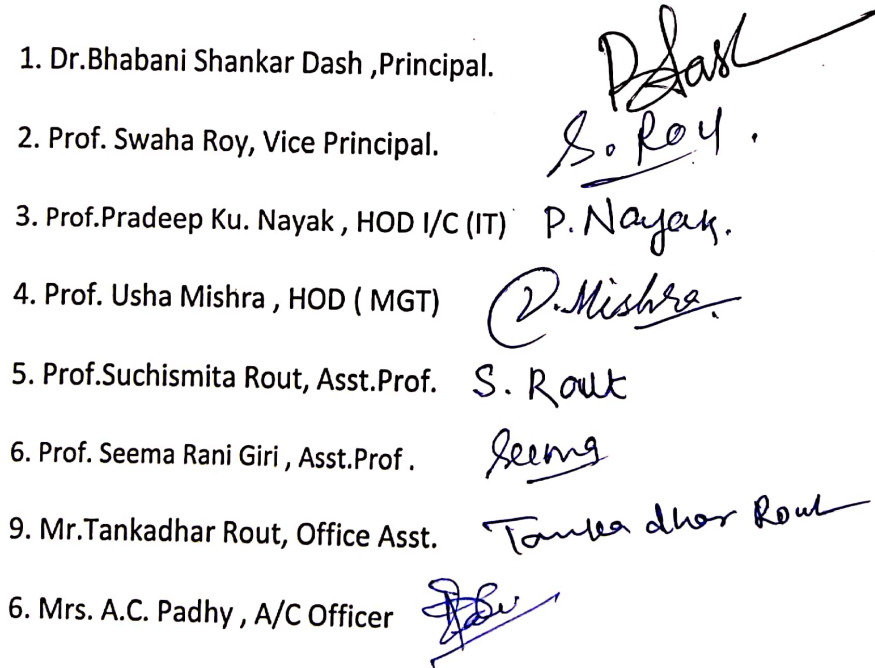 1. Dr.Bhabani Shankar Dash ,Principal.
2. Prof. Swaha Roy, Vice Principal. S. Roy.
3. Prof.Pradeep Ku. Nayak , HOD I/C (IT) P. Nayak.
4. Prof. Usha Mishra , HOD ( MGT) U.Mishra.
5. Prof.Suchismita Rout, Asst.Prof. S. Rout
6. Prof. Seema Rani Giri , Asst.Prof . Seema
9. Mr.Tankadhar Rout, Office Asst. Tanka dhar Rout
6. Mrs. A.C. Padhy , A/C Officer